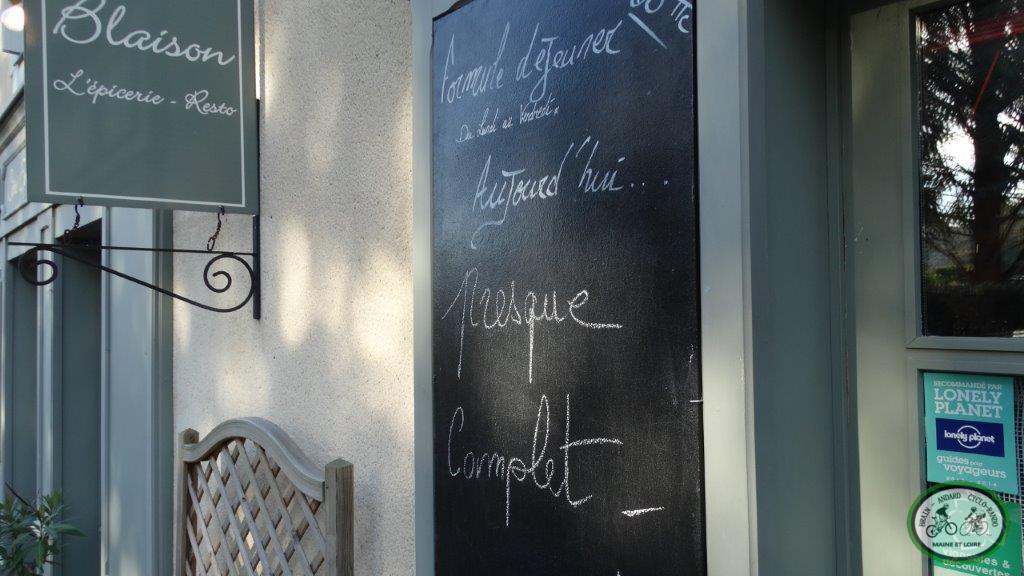 Blaison
L'épicerie - Resto
Formule déjeuner
Du Lundi au Vendredi.
Aujourd'hui....
Presque
Complet
RECOMMANDÉ PAR
LONELY
PLANET
lonely planet
guides pour
voyageurs
BRAIN - ANDARD CYCLO-RANDO
MAINE ET LOIRE
découvertes